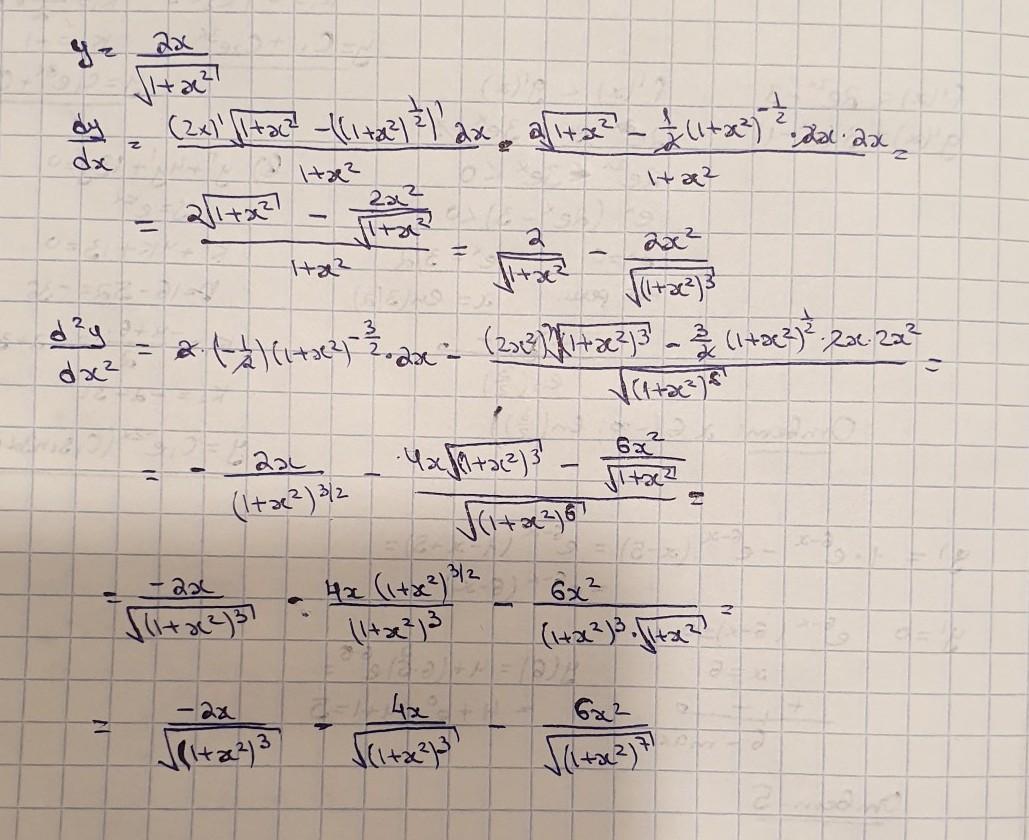 y = \frac{2x}{\sqrt{1+x^2}}
\frac{dy}{dx} = \frac{(2x)'\sqrt{1+x^2} - ((1+x^2)^{\frac{1}{2}})' 2x}{1+x^2} = \frac{2\sqrt{1+x^2} - \frac{1}{2}(1+x^2)^{-\frac{1}{2}} \cdot 2x \cdot 2x}{1+x^2} =
= \frac{2\sqrt{1+x^2} - \frac{2x^2}{\sqrt{1+x^2}}}{1+x^2} = \frac{2}{\sqrt{1+x^2}} - \frac{2x^2}{\sqrt{(1+x^2)^3}}
\frac{d^2y}{dx^2} = 2 \cdot (-\frac{1}{2})(1+x^2)^{-\frac{3}{2}} \cdot 2x - \frac{(2x^2)'\sqrt{(1+x^2)^3} - \frac{3}{2}(1+x^2)^{\frac{1}{2}} \cdot 2x \cdot 2x^2}{\sqrt{(1+x^2)^6}} =
= - \frac{2x}{(1+x^2)^{3/2}} - \frac{4x\sqrt{(1+x^2)^3} - \frac{6x^2}{\sqrt{1+x^2}}}{\sqrt{(1+x^2)^6}} =
= \frac{-2x}{\sqrt{(1+x^2)^3}} - \frac{4x(1+x^2)^{3/2}}{(1+x^2)^3} - \frac{6x^2}{(1+x^2)^3 \cdot \sqrt{1+x^2}} =
= \frac{-2x}{\sqrt{(1+x^2)^3}} - \frac{4x}{\sqrt{(1+x^2)^3}} - \frac{6x^2}{\sqrt{(1+x^2)^7}}